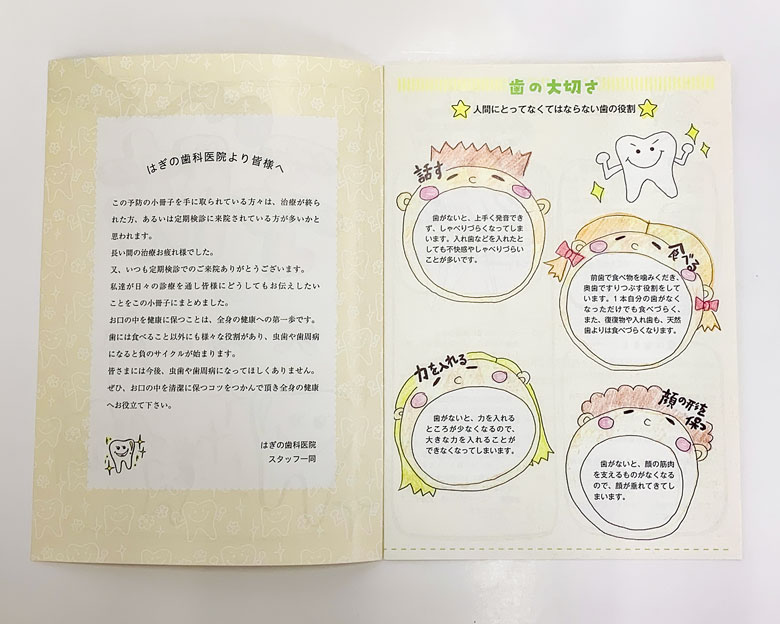 はぎの歯科医院より皆様へ
この予防の小冊子を手に取られている方々は、治療が終ら
れた方、あるいは定期検診に来院されている方が多いかと
思われます。
長い間の治療お疲れ様でした。
又、いつも定期検診でのご来院ありがとうございます。
私達が日々の診療を通し皆様にどうしてもお伝えしたい
ことをこの小冊子にまとめました。
お口の中を健康に保つことは、全身の健康への第一歩です。
歯には食べること以外にも様々な役割があり、虫歯や歯周病
になると負のサイクルが始まります。
皆さまには今後、虫歯や歯周病になってほしくありません。
ぜひ、お口の中を清潔に保つコツをつかんで頂き全身の健康
へお役立て下さい。
はぎの歯科医院
スタッフ一同
歯の大切さ
人間にとってなくてはならない歯の役割
話す
歯がないと、上手く発音でき
ず、しゃべりづらくなってしま
います。入れ歯などを入れたと
しても不快感やしゃべりづらい
ことが多いです。
食べる
前歯で食べ物を噛みくだき、
奥歯ですりつぶす役割をして
います。1本自分の歯がなく
なっただけでも食べづらく、
また、復復物や入れ歯も、天然
歯よりは食べづらくなります。
力を入れる
歯がないと、力を入れる
ところが少なくなるので、
大きな力を入れることが
できなくなってしまいます。
顔の形を
保つ
歯がないと、顔の筋肉
を支えるものがなくなる
ので、顔が垂れてきてし
まいます。